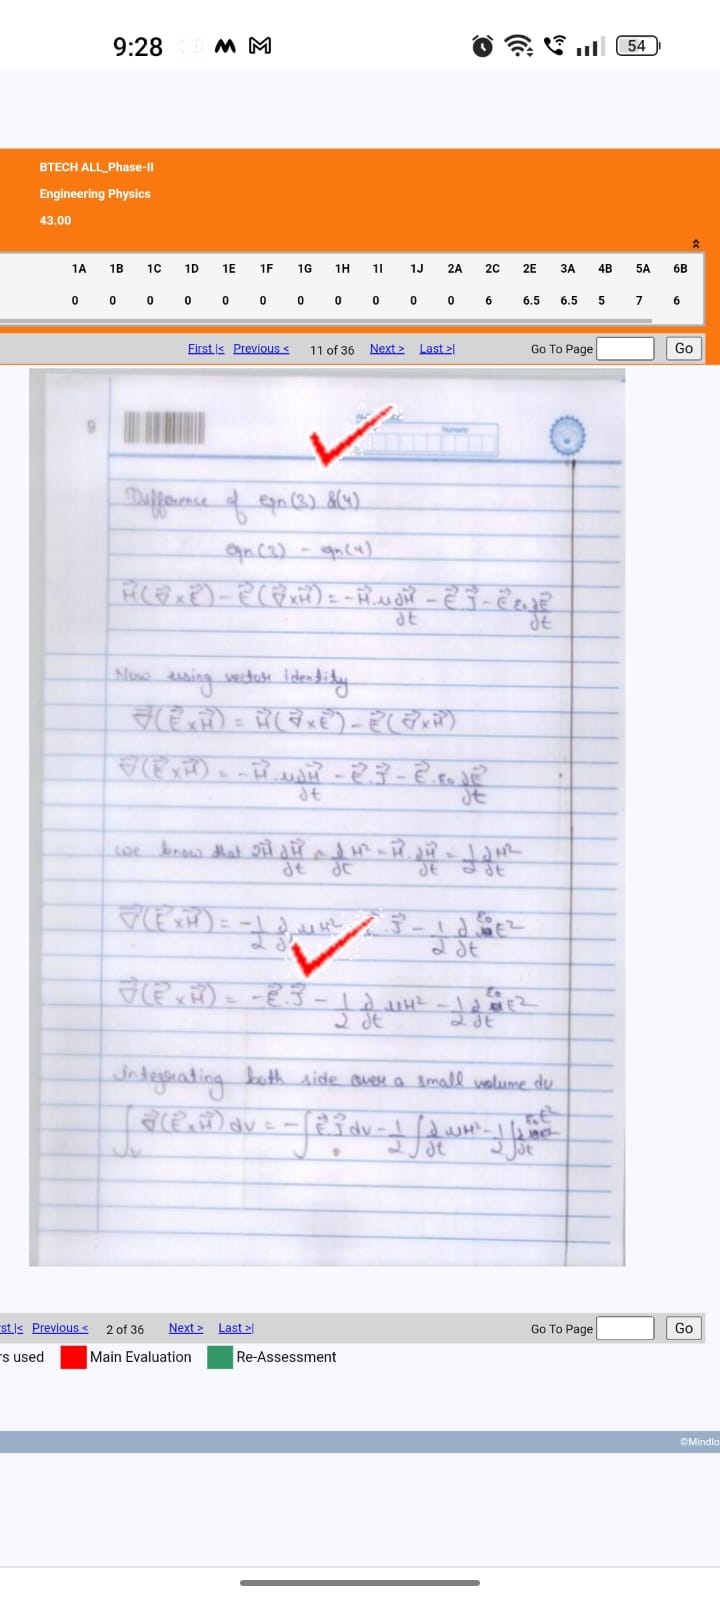 9:28
54
BTECH ALL_Phase-II
Engineering Physics
43.00
1A 1B 1C 1D 1E 1F 1G 1H 1I 1J 2A 2C 2E 3A 4B 5A 6B
0 0 0 0 0 0 0 0 0 0 0 6 6.5 6.5 5 7 6
First |< Previous < 11 of 36 Next > Last >| Go To Page Go
9
Difference of eqn (3) & (4)
eqn (3) - eqn (4)
H⃗(∇⃗×E⃗) - E⃗(∇⃗×H⃗) = -H⃗.μ∂H⃗/∂t - E⃗.J⃗ - E⃗ ε₀∂E⃗/∂t
Now using vector identity
∇⃗(E⃗×H⃗) = H⃗(∇⃗×E⃗) - E⃗(∇⃗×H⃗)
∇⃗(E⃗×H⃗) = -H⃗.μ∂H⃗/∂t - E⃗.J⃗ - E⃗.ε₀∂E⃗/∂t
we know that 2H⃗ ∂H⃗/∂t = ∂/∂t H² = H⃗.∂H⃗/∂t = 1/2 ∂H²/∂t
∇⃗(E⃗×H⃗) = -1/2 ∂/∂t μH² .J⃗ - 1/2 ∂/∂t ε₀E²
∇⃗(E⃗×H⃗) = -E⃗.J⃗ - 1/2 ∂/∂t μH² - 1/2 ∂/∂t ε₀E²
integrating both side over a small volume dv
∫v ∇⃗(E⃗×H⃗)dv = -∫E⃗.J⃗dv - 1/2 ∫∂/∂t μH² - 1/2 ∫∂/∂t ε₀E²
rst |< Previous < 2 of 36 Next > Last >| Go To Page Go
rs used Main Evaluation Re-Assessment
©Mindlo